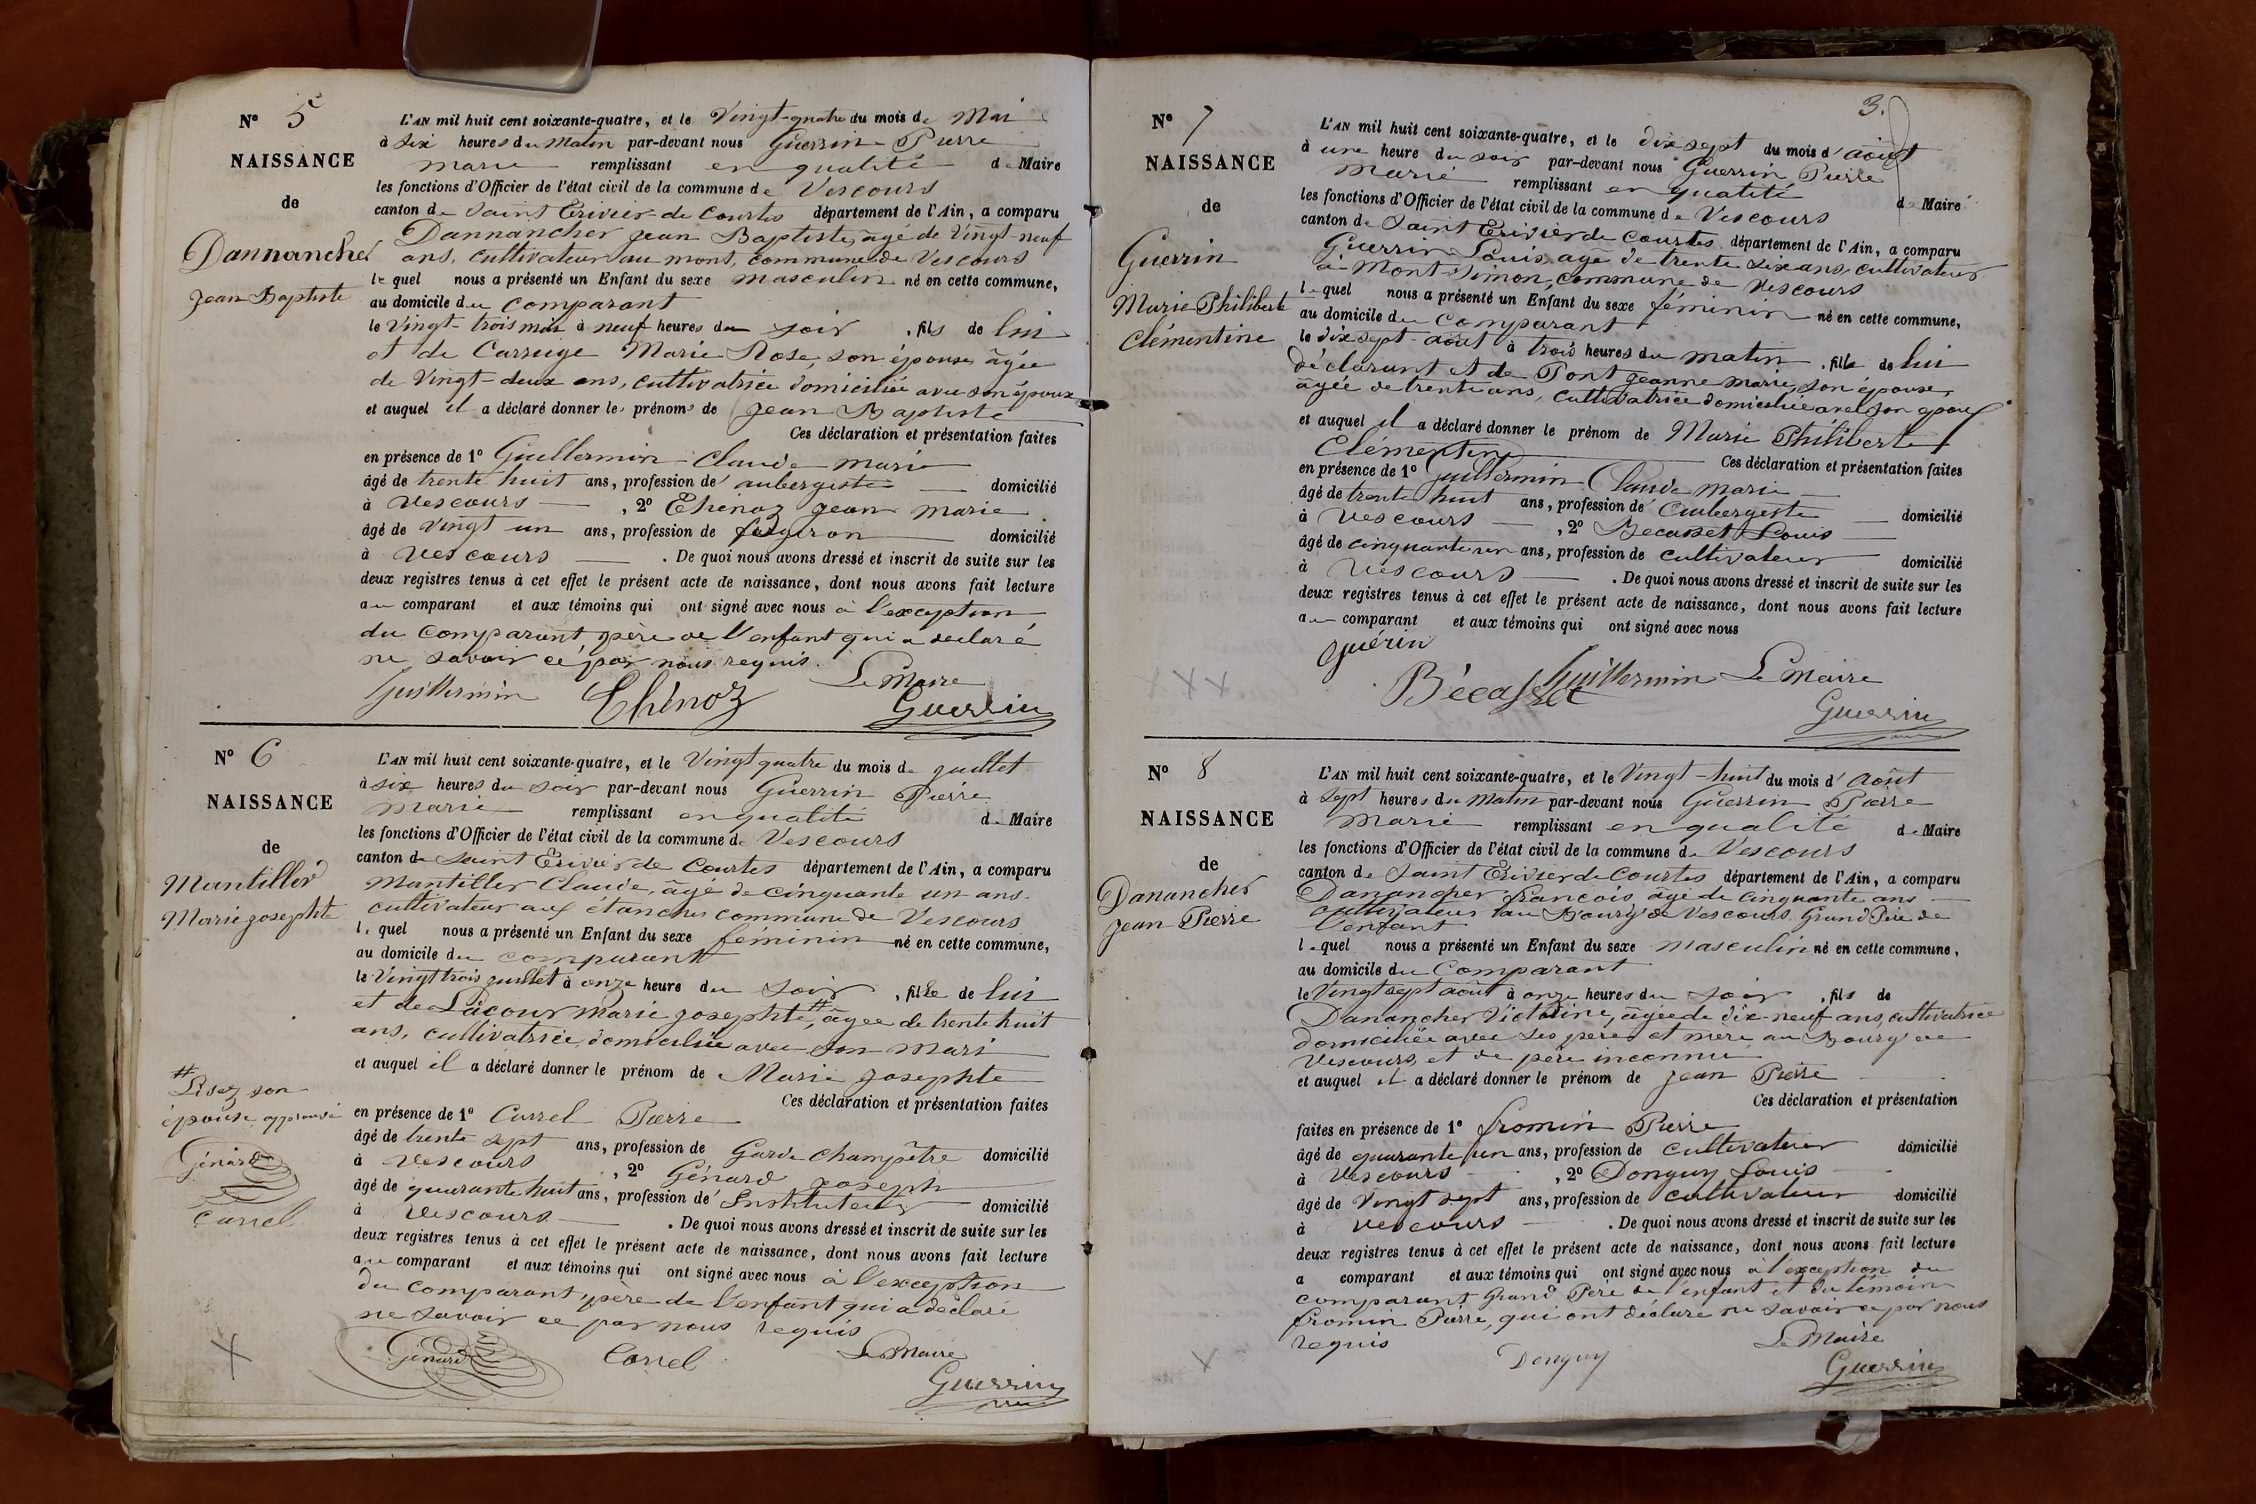 Nº 5
NAISSANCE
de
Dannancher
Jean Baptiste
L'AN mil huit cent soixante-quatre, et le Vingt-quatre du mois de Mai
à six heures du Matin par-devant nous Guerrin Pierre
marie remplissant en qualité de Maire
les fonctions d'Officier de l'état civil de la commune de Vescours
canton de Saint Trivier de Courtes département de l'Ain, a comparu
Dannancher Jean Baptiste, âgé de Vingt-neuf
ans, cultivateur au mont, commune de Vescours
le quel nous a présenté un Enfant du sexe masculin né en cette commune,
au domicile du comparant
le Vingt-trois mai à neuf heures du soir, fils de lui
et de Carruge Marie Rose, son épouse, âgée
de Vingt-deux ans, cultivatrice domiciliée avec son époux
et auquel il a déclaré donner les prénoms de Jean Baptiste
Ces déclaration et présentation faites
en présence de 1º Guillermin Claude marie
âgé de trente huit ans, profession de aubergiste domicilié
à Vescours, 2º Thénoz Jean marie
âgé de Vingt un ans, profession de domicilié
à Vescours. De quoi nous avons dressé et inscrit de suite sur les
deux registres tenus à cet effet le présent acte de naissance, dont nous avons fait lecture
au comparant et aux témoins qui ont signé avec nous à l'exception
du comparant père de l'enfant qui a déclaré
ne savoir ce par nous requis.
Guillermin Thénoz Le Maire
Guerrin
Nº 6
NAISSANCE
de
Mantiller
Marie josephte
# Lisez son
épouse approuvé
Génard
Carrel
L'AN mil huit cent soixante-quatre, et le Vingt quatre du mois de juillet
à six heures du soir par-devant nous Guerrin Pierre
Marie remplissant en qualité de Maire
les fonctions d'Officier de l'état civil de la commune de Vescours
canton de Saint Trivier de Courtes département de l'Ain, a comparu
Mantiller Claude, âgé de cinquante un ans
cultivateur aux étanches commune de Vescours
le quel nous a présenté un Enfant du sexe féminin né en cette commune,
au domicile du comparant
le Vingt trois juillet à onze heure du soir, fille de lui
et de Lacour Marie josephte, # âgée de trente huit
ans, cultivatrice, domiciliée avec son mari
et auquel il a déclaré donner le prénom de Marie josephte
Ces déclaration et présentation faites
en présence de 1º Carrel Pierre
âgé de trente sept ans, profession de Garde champêtre domicilié
à Vescours, 2º Génard Joseph
âgé de quarante huit ans, profession d'Instituteur domicilié
à Vescours. De quoi nous avons dressé et inscrit de suite sur les
deux registres tenus à cet effet le présent acte de naissance, dont nous avons fait lecture
au comparant et aux témoins qui ont signé avec nous à l'exception
du comparant, père de l'enfant qui a déclaré
ne savoir ce par nous requis
Génard Carrel Le Maire
Guerrin
3.
Nº 7
NAISSANCE
de
Guerrin
Marie Philiberte
Clémentine
L'AN mil huit cent soixante-quatre, et le dix sept du mois d'août
à une heure du soir par-devant nous Guerrin Pierre
Marie remplissant en qualité de Maire
les fonctions d'Officier de l'état civil de la commune de Vescours
canton de Saint Trivier de Courtes département de l'Ain, a comparu
Guerrin Louis, âgé de trente six ans, cultivateur
à Mont-Simon, commune de Vescours
le quel nous a présenté un Enfant du sexe féminin né en cette commune,
au domicile du comparant
le dix sept août à trois heures du matin, fille de lui
déclarant et de Pont Jeanne marie, son épouse,
âgée de trente ans, cultivatrice domiciliée avec son époux
et auquel il a déclaré donner le prénom de Marie Philiberte
Clémentine Ces déclaration et présentation faites
en présence de 1º Guillermin Claude marie
âgé de trente huit ans, profession de Aubergiste domicilié
à Vescours, 2º Becasset Louis
âgé de cinquante un ans, profession de cultivateur domicilié
à Vescours. De quoi nous avons dressé et inscrit de suite sur les
deux registres tenus à cet effet le présent acte de naissance, dont nous avons fait lecture
au comparant et aux témoins qui ont signé avec nous
guérin
Bécasset Guillermin Le Maire
Guerrin
Nº 8
NAISSANCE
de
Danancher
Jean Pierre
L'AN mil huit cent soixante-quatre, et le Vingt-huit du mois d'août
à sept heures du Matin par-devant nous Guerrin Pierre
Marie remplissant en qualité de Maire
les fonctions d'Officier de l'état civil de la commune de Vescours
canton de Saint Trivier de Courtes département de l'Ain, a comparu
Danancher françois, âgé de cinquante ans
cultivateur au Bourg de Vescours Grand Père de
l'enfant
le quel nous a présenté un Enfant du sexe masculin né en cette commune,
au domicile du Comparant
le Vingt sept août à onze heures du soir, fils de
Danancher Victorine, âgée de dix-neuf ans, cultivatrice
domiciliée avec ses père et mère au Bourg de
Vescours, et de père inconnu
et auquel il a déclaré donner le prénom de Jean Pierre
Ces déclaration et présentation
faites en présence de 1º fromin Pierre
âgé de quarante un ans, profession de cultivateur domicilié
à Vescours, 2º Donguy Louis
âgé de Vingt sept ans, profession de cultivateur domicilié
à Vescours. De quoi nous avons dressé et inscrit de suite sur les
deux registres tenus à cet effet le présent acte de naissance, dont nous avons fait lecture
a comparant et aux témoins qui ont signé avec nous à l'exception du
comparant Grand Père de l'enfant et du témoin
fromin Pierre, qui ont déclaré ne savoir ce par nous
requis Donguy Le Maire
Guerrin